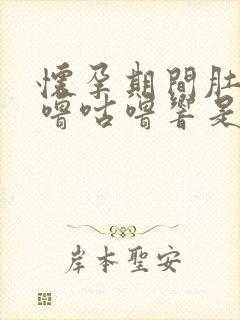 懷孕期間肚
嚕咕嚕響是
岸本聖安